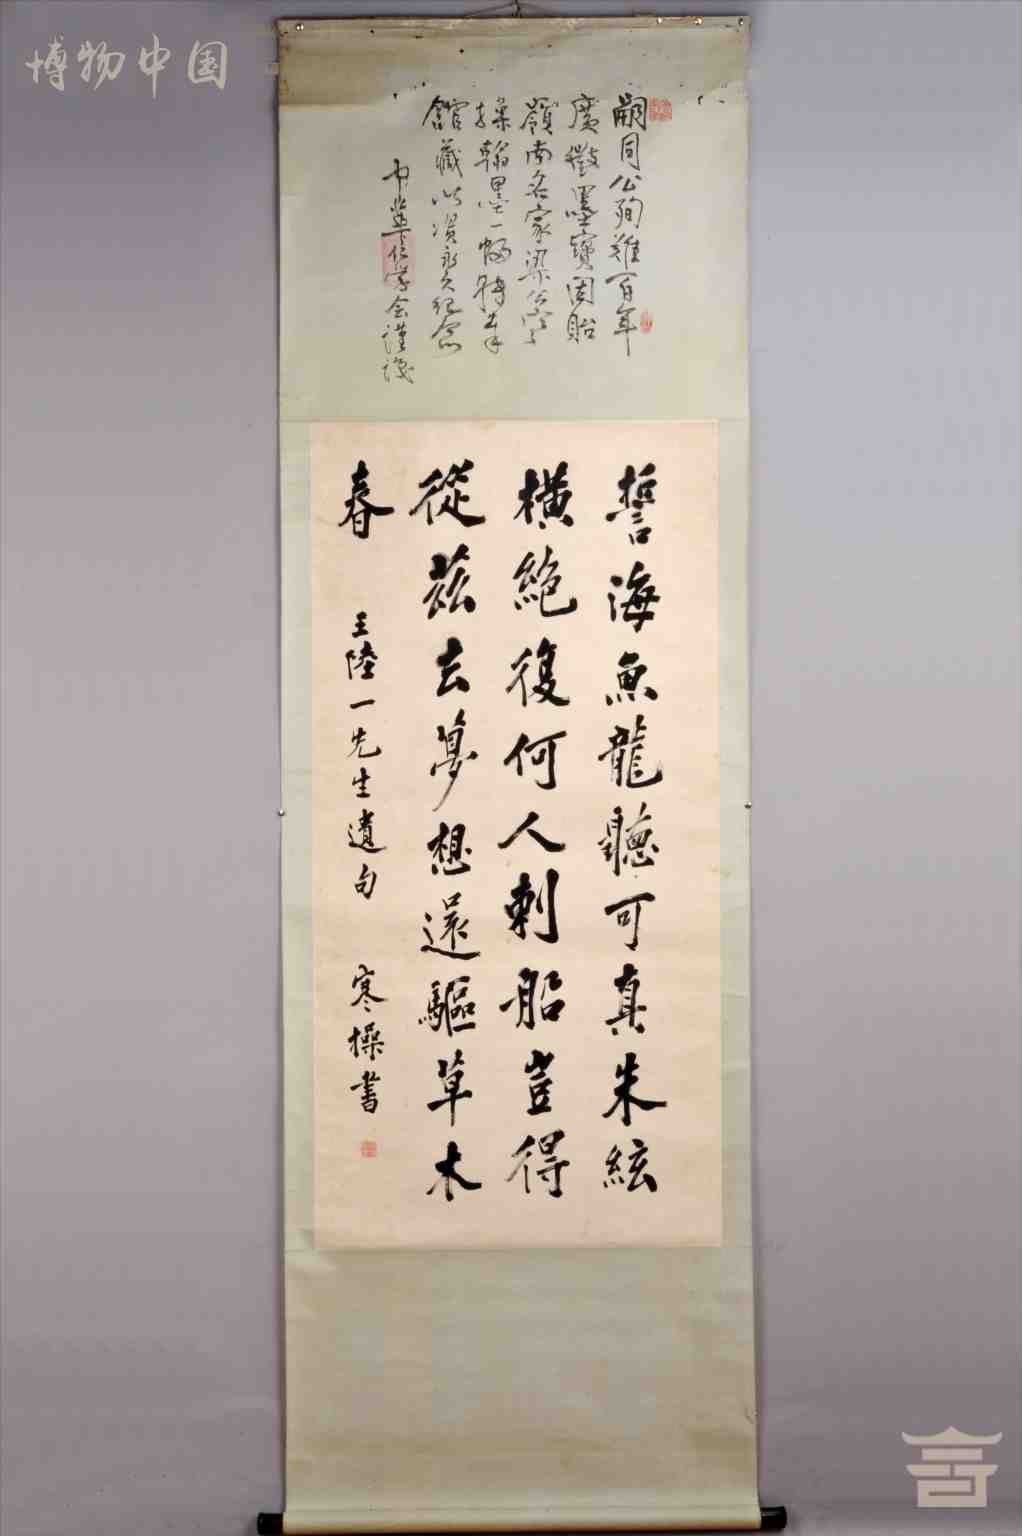 博物中国
嗣同公殉難百年
廣徵墨寶因貽
嶺南名家梁公寒
操翰墨一幅轉奉
館藏以資永久紀念
中華仁學會謹識
誓海魚龍聽可真朱絃
橫絶復何人刺船豈得
從茲去夢想還驅草木
春
王陸一先生遺句
寒操書